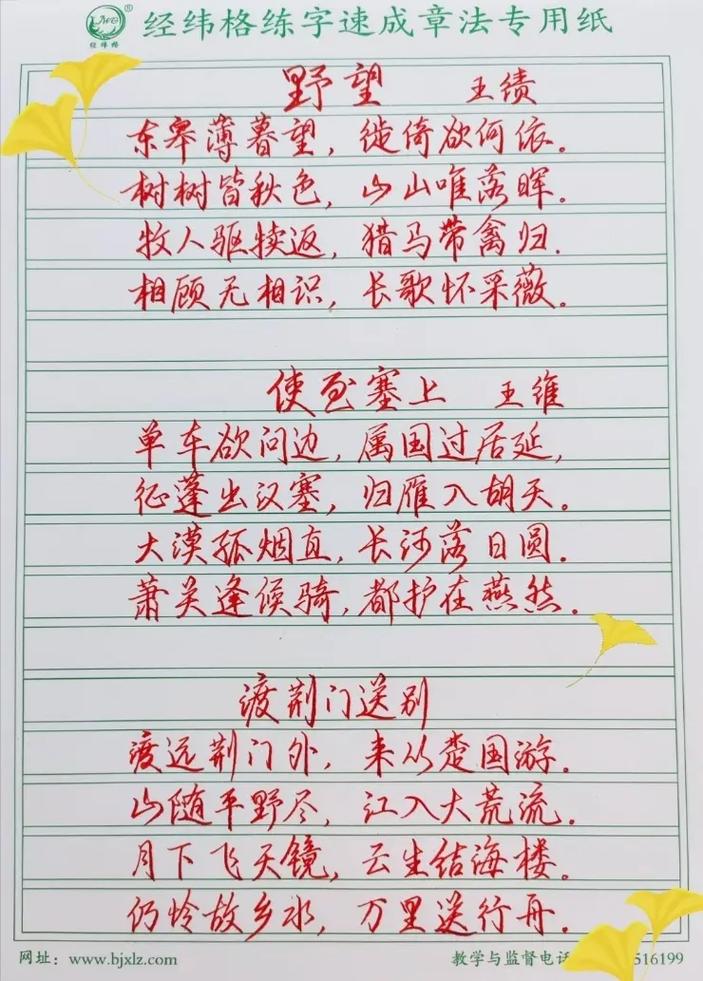 经纬格练字速成章法专用纸
经纬格
野望 王绩
东皋薄暮望，徙倚欲何依。
树树皆秋色，山山唯落晖。
牧人驱犊返，猎马带禽归。
相顾无相识，长歌怀采薇。
使至塞上 王维
单车欲问边，属国过居延，
征蓬出汉塞，归雁入胡天。
大漠孤烟直，长河落日圆。
萧关逢候骑，都护在燕然。
渡荆门送别
渡远荆门外，来从楚国游。
山随平野尽，江入大荒流。
月下飞天镜，云生结海楼。
仍怜故乡水，万里送行舟。
网址：www.bjxlz.com 教学与监督电话 516199